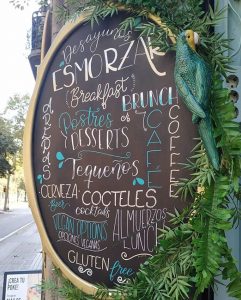 Desayunos
ESMORZAR
(Breakfast)
BRUNCH
Postres
& DESSERTS
CAFE
COFFEE
Tequeños
CERVEZA
Beer
COCTELES
cocktails
VEGAN OPTIONS
OPCIONES VEGANAS
ALMUERZOS
LUNCH
GLUTEN free
CREA TU
POKE!